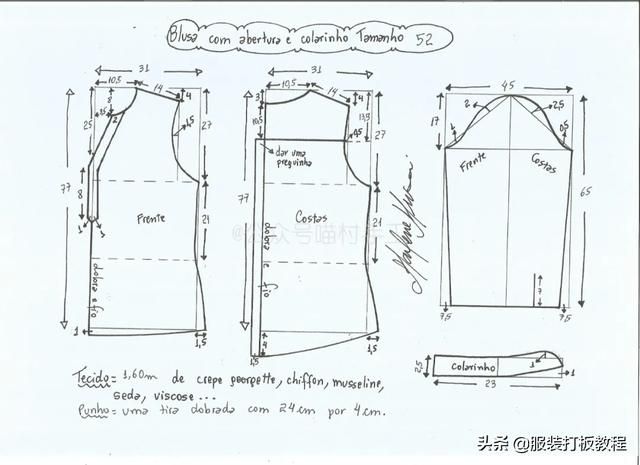 Blusa com abertura e colarinho Tamanho 52
31
10,5
14
4
8
2
25
1,5
27
77
8
1
1
Frente
21
dobra e fio
1
1,5
31
10,5
14
4
3
10,5
13,5
dar uma preguinha
27
77
Costas
21
dobra e fio
1,5
4
1,5
45
2
2,5
17
1
0,5
Frente
Costas
65
7
7,5
7,5
2,5
Colarinho
1
1
23
Tecido = 1,60m de crepe poorpette, chiffon, musseline,
seda, viscose ...
Punho = uma tira dobrada com 24cm por 4cm.
头条 @服装打板教程